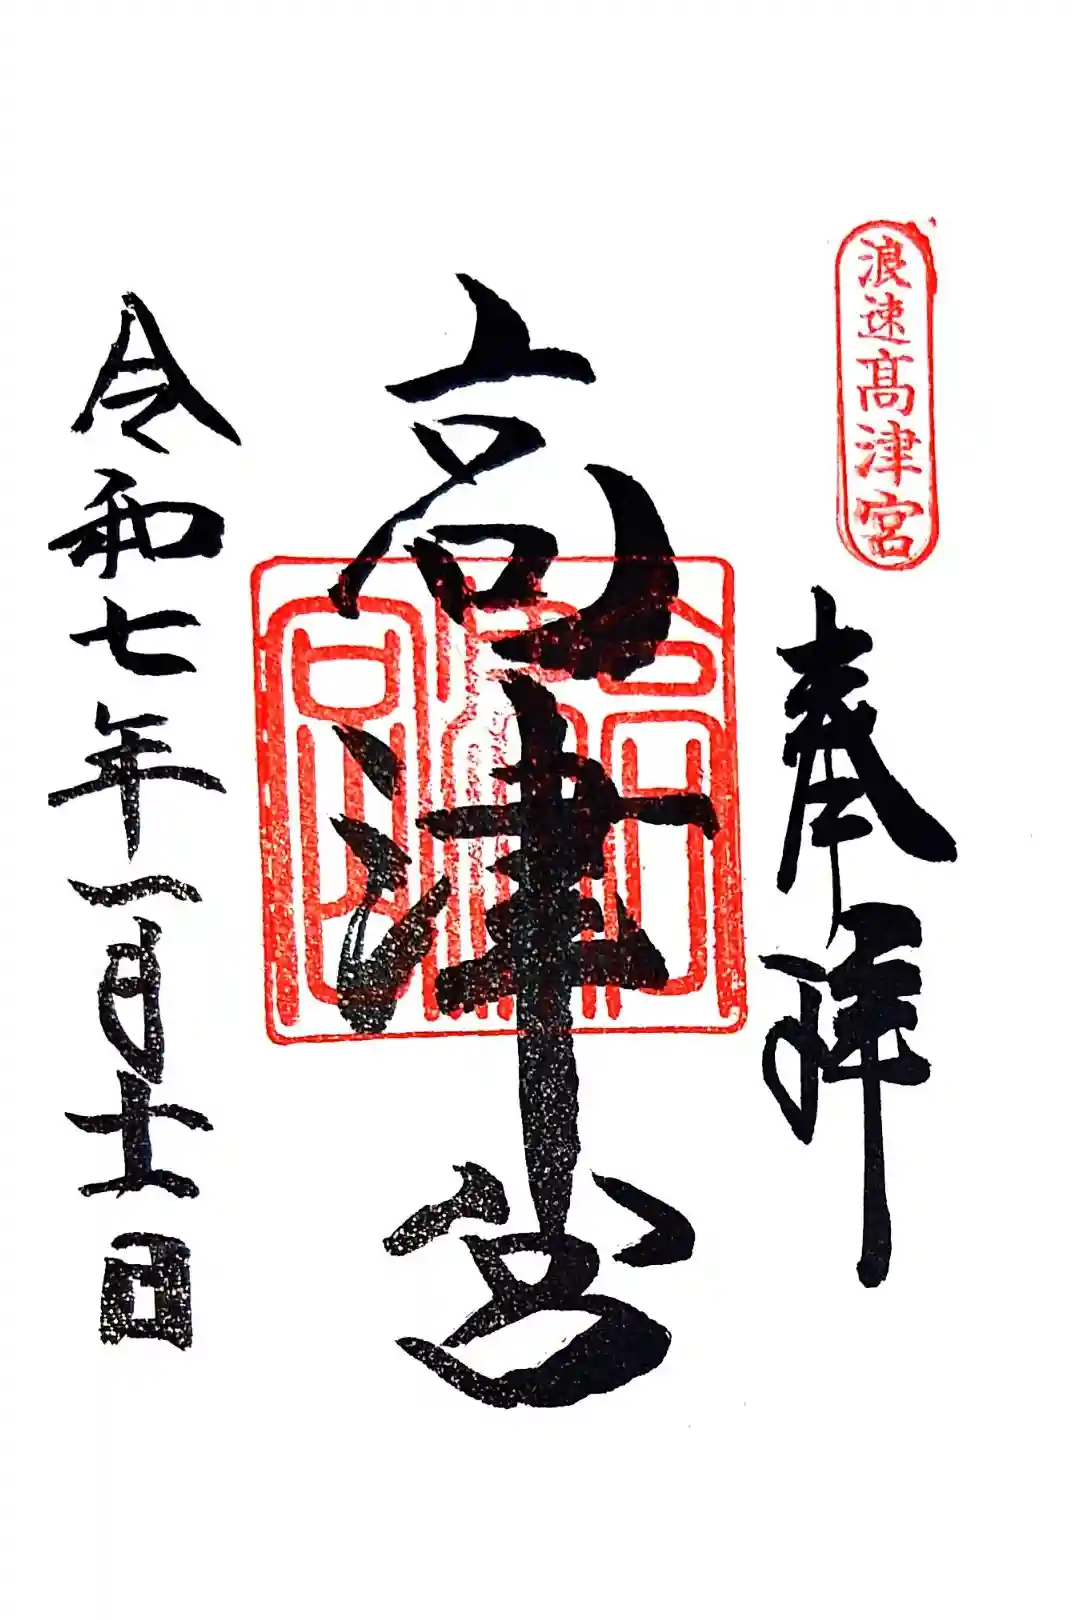 浪速髙津宮
奉拝
高津宮
令和七年一月十一日